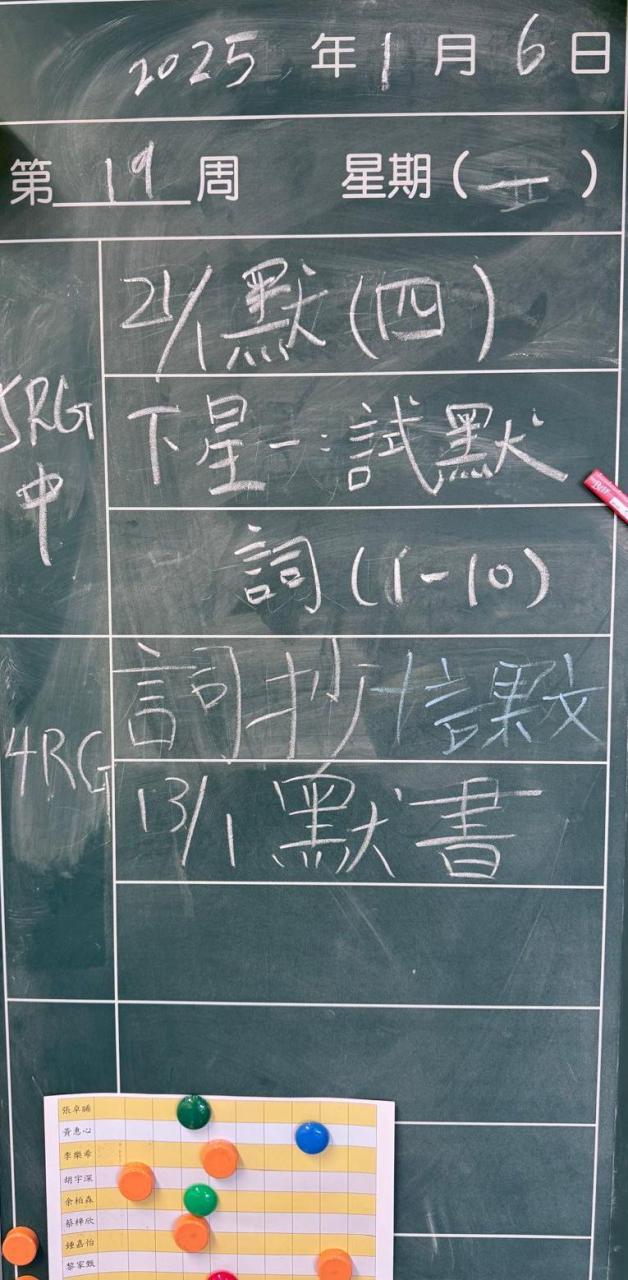 2025 年 1 月 6 日
第 19 周 星期 (一)
5RG 中
21/1 默 (四)
下星一: 試默
詞 (1-10)
4RG
詞抄+
13/1 默書
張卓晞
黃惠心
李樂希
胡宇深
余柏森
蔡梓欣
鍾嘉怡
黎家甄